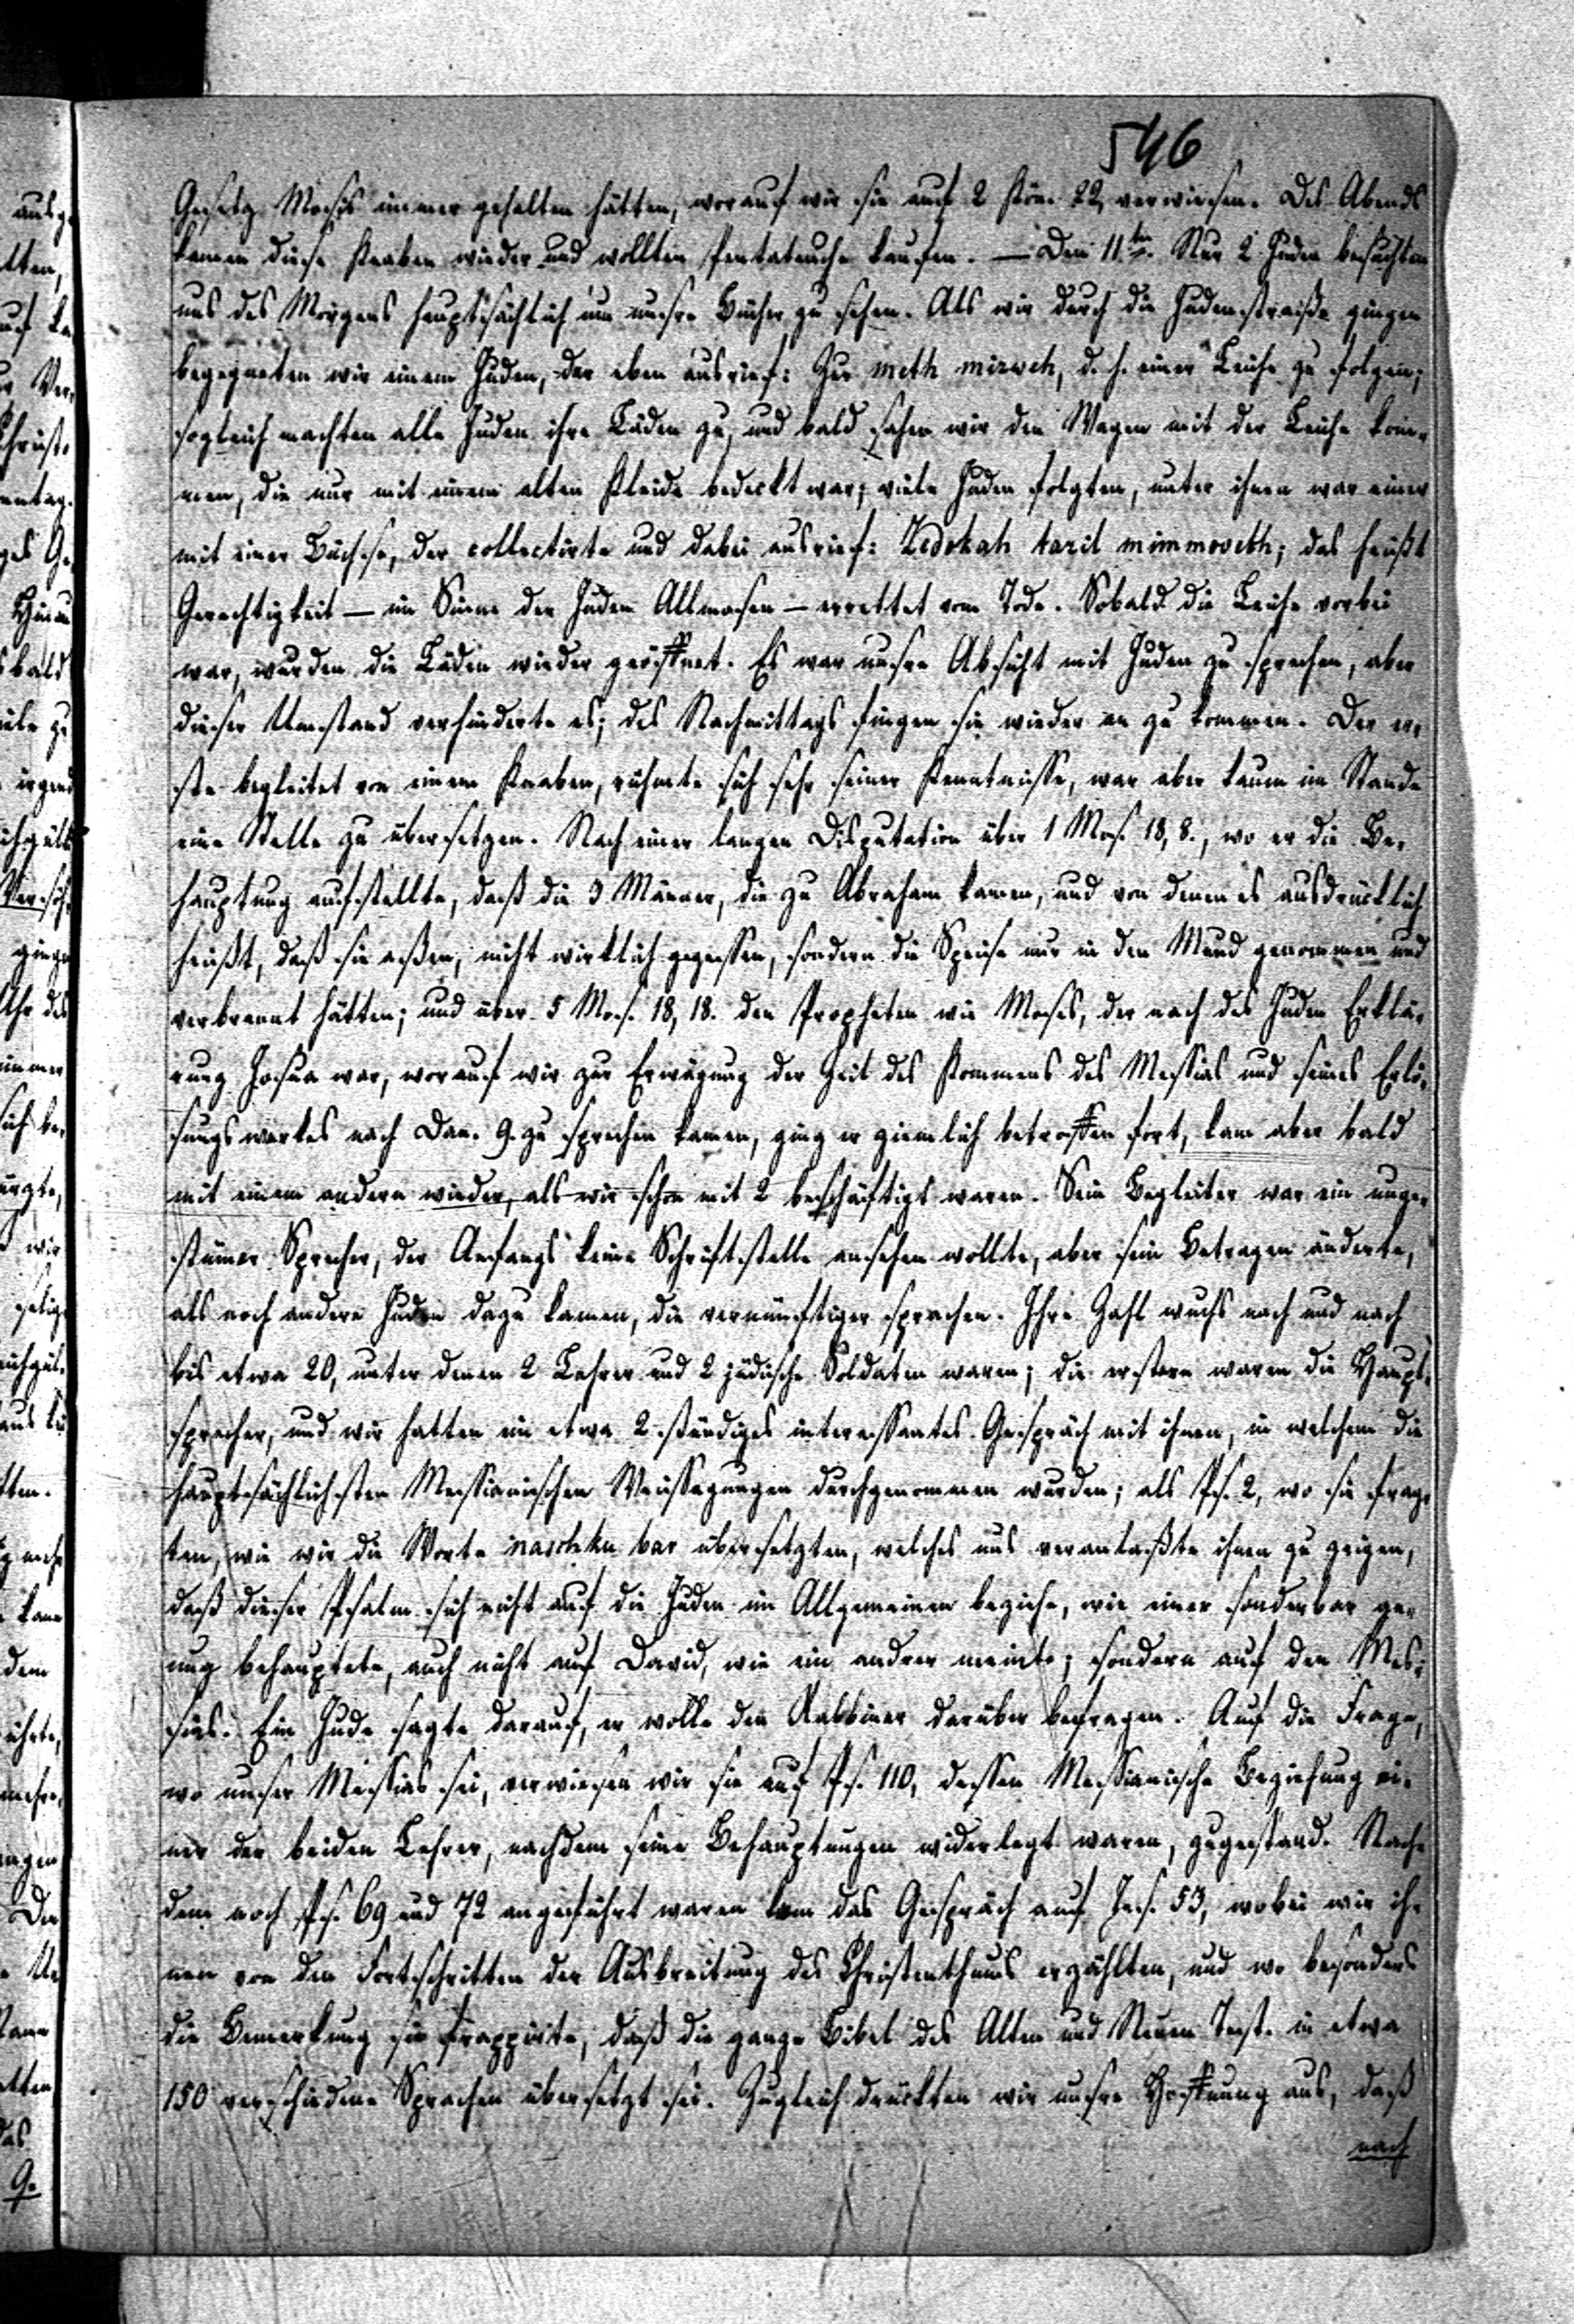 546
Gesetz Mosis immer gehalten hätten, worauf wir sie auf 2 Kön. 22, verwiesen. Des Abends
kamen diese Knaben wieder und wollten Pentateuche kaufen. — Den 11.ten Nur 2 Juden besuchten
uns des Morgens hauptsächlich um unsre Bücher zu sehen. Als wir durch die Judenstraiße gingen
begegneten wir einem Juden, der eben ausrief: Zur meth mizweh, d. h. einer Leiche zu folgen;
sogleich machten alle Juden ihre Läden zu, und bald sahen wir den Wagen mit der Leiche kom-
men, die nur mit einem alten Kleide bedeckt war; viele Juden folgten, unter ihnen war einer
mit einer Büchse, der collectirte und dabei ausrief: Zedokah tazil mimmoveth; das heißt
Gerechtigkeit — im Sinne der Juden Allmosen — errettet vom Tode. Sobald die Leiche vorbei
war, wurden die Läden wieder geöffnet. Es war unsre Absicht mit Juden zu sprechen, aber
dieser Umstand verhinderte es; des Nachmittags fingen sie wieder an zu kommen. Der er-
ste begleitet von einem Knaben, rühmte sich sehr seiner Kenntnisse, war aber kaum im Stande
eine Stelle zu übersetzen. Nach einer langen Disputation über 1 Mos. 18, 8., wo er die Be-
hauptung aufstellte, daß die 3 Männer, die zu Abraham kamen, und von denen es ausdrücklich
heißt, daß sie aßen, nicht wirklich gegessen, sondern die Speise nur in den Mund genommen und
verbrannt hätten; und über 5 Mos. 18, 18. den Propheten wie Moses, der nach des Juden Erklä-
rung Josua war, worauf wir zur Erwägung der Zeit des Kommens des Messias und seines Erlö-
sungswerkes nach Dan. 9. zu sprechen kamen, ging er ziemlich betroffen fort, kam aber bald
mit einem andern wieder, als wir schon mit 2 beschäftigt waren. Sein Begleiter war ein unge-
stümer Sprecher, der Anfangs keine Schriftstelle ansehen wollte, aber sein Betragen änderte,
als noch andere Juden dazu kamen, die vernünftiger sprachen. Ihre Zahl wuchs nach und nach
bis etwa 20, unter denen 2 Lehrer und 2 jüdische Soldaten waren; die erstern waren die Haupt-
sprecher, und wir hatten ein etwa 2 stündiges interessantes Gespräch mit ihnen, in welchem die
hauptsächlichsten Messianischen Weissagungen durchgenommen wurden; als Ps. 2, wo sie frag-
ten, wie wir die Worte naschku bar übersetzten, welches uns veranlaßte ihnen zu zeigen,
daß dieser Psalm sich nicht auf die Juden im Allgemeinen beziehe, wie einer sonderbar ge-
nug behauptete, auch nicht auf David, wie ein andrer meinte; sondern auf den Mes-
sias. Ein Jude sagte darauf, er wolle den Rabbiner darüber befragen. Auf die Frage,
wo unser Messias sei, verwiesen wir sie auf Ps. 110, dessen Messianische Beziehung ei-
ner der beiden Lehrer, nachdem seine Behauptungen widerlegt waren, zugestand. Nach-
dem noch Ps. 69 und 72 angeführt waren kam das Gespräch auf Jes. 53, wobei wir ih-
nen von den Fortschritten der Ausbreitung des Christenthums erzählten, und wo besonders
die Bemerkung sie frappirte, daß die ganze Bibel des Alten und Neuen Test. in etwa
150 verschiedene Sprachen übersetzt sei. Zugleich drückten wir unsre Hoffnung aus, daß
nach